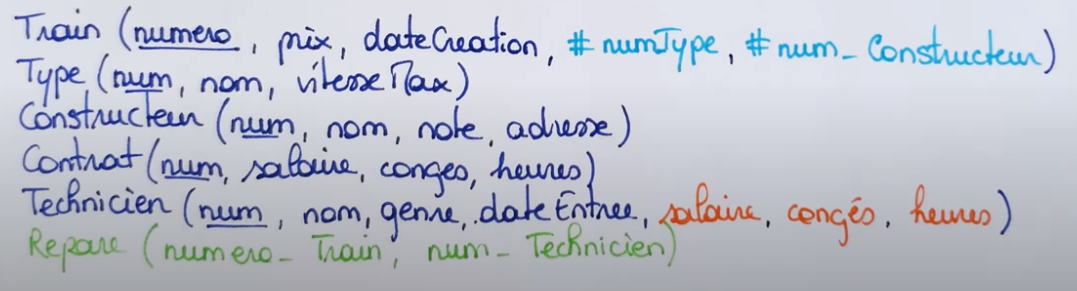 Train (numero, prix, dateCreation, #numType, #num_Constructeur)
Type (num, nom, vitesseMax)
Constructeur (num, nom, note, adresse)
Contrat (num, salaire, conges, heures)
Technicien (num, nom, genre, dateEntree, salaire, congés, heures)
Repare (numero_Train, num_Technicien)